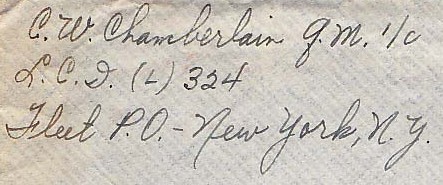 C.W. Chamberlain Q.M. 1/c
L.C.I. (L) 324
Fleet P.O. - New York, N.Y.